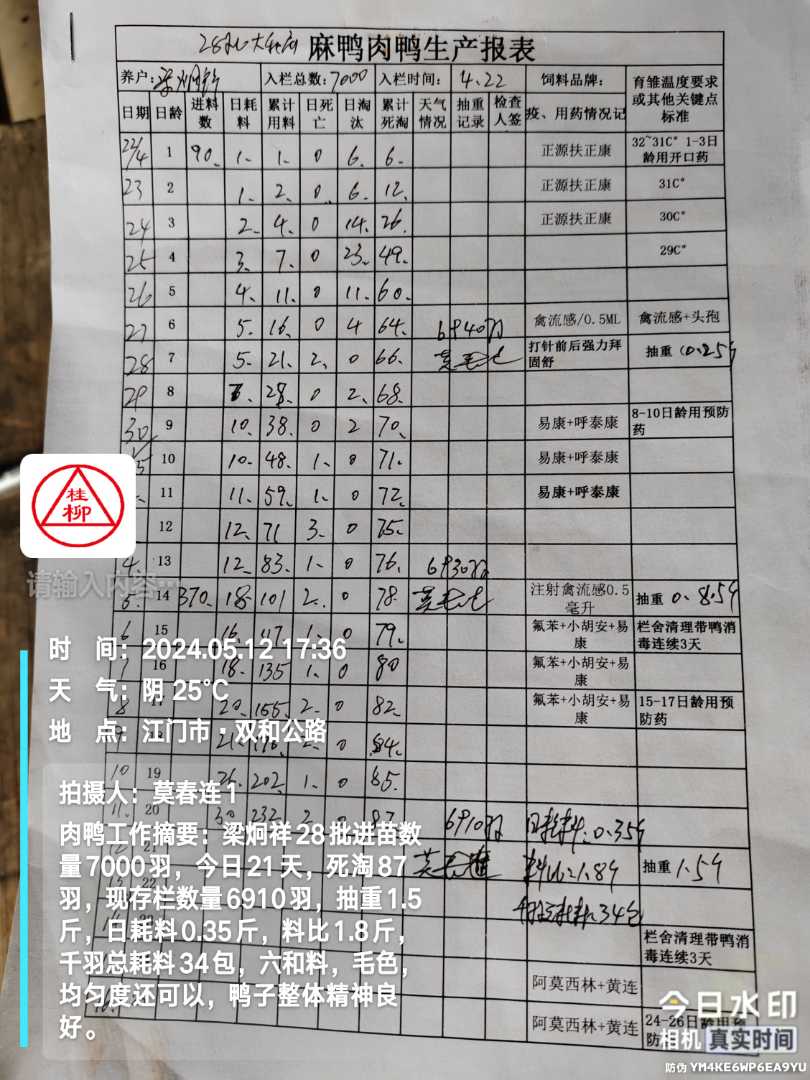 28批大红冠 麻鸭肉鸭生产报表
养户: 梁炯祥 入栏总数:7000 入栏时间: 4.22 饲料品牌: 育雏温度要求或其他关键点标准
日期 日龄 进料数 日耗料 累计用料 日死亡 日淘汰 累计死淘 天气情况 抽重记录 检查人签 疫、用药情况记
22/4 1 90. 1. 1. 0 6. 6. 正源扶正康 32~31C° 1-3日龄用开口药
23 2 1. 2. 0 6. 12. 正源扶正康 31C°
24 3 2. 4. 0 14. 26. 正源扶正康 30C°
25 4 3. 7. 0 23. 49. 29C°
26 5 4. 11. 0 11. 60.
27 6 5. 16. 0 4 64. 6940羽 禽流感/0.5ML 禽流感+头孢
28 7 5. 21. 2. 0 66. 打针前后强力拜固舒 抽重(0.25斤
29 8 28. 0 2. 68.
30 9 10. 38. 0 2 70. 易康+呼泰康 8-10日龄用预防药
10 10. 48. 1. 0 71. 易康+呼泰康
11 11. 59. 1. 0 72. 易康+呼泰康
12 12. 71 3. 0 75.
4. 13 12. 83. 1. 0 76. 6930羽
5. 14 370. 18. 101 2. 0 78. 注射禽流感0.5毫升 抽重 0.85斤
6 15 16. 117 1. 0 79. 氟苯+小胡安+易康 栏舍清理带鸭消毒连续3天
16 18. 135 1. 0 80 氟苯+小胡安+易康
8 20. 155 2. 0 82. 氟苯+小胡安+易康 15-17日龄用预防药
21. 176 2. 0 84.
10 19 26. 202. 1. 0 85.
11. 20 30. 232 2. 0 87. 6910羽 日耗料:0.35斤
料比:1.8斤 抽重 1.5斤
千羽总耗料34包
栏舍清理带鸭消毒连续3天
阿莫西林+黄连
阿莫西林+黄连 24-26日龄用预防
桂柳
请输入内容…
时 间：2024.05.12 17:36
天 气：阴 25°C
地 点：江门市·双和公路
拍摄人：莫春连1
肉鸭工作摘要：梁炯祥28批进苗数
量7000羽，今日21天，死淘87
羽，现存栏数量6910羽，抽重1.5
斤，日耗料0.35斤，料比1.8斤，
千羽总耗料34包，六和料，毛色，
均匀度还可以，鸭子整体精神良
好。
今日水印
相机 真实时间
防伪 YM4KE6WP6EA9YU